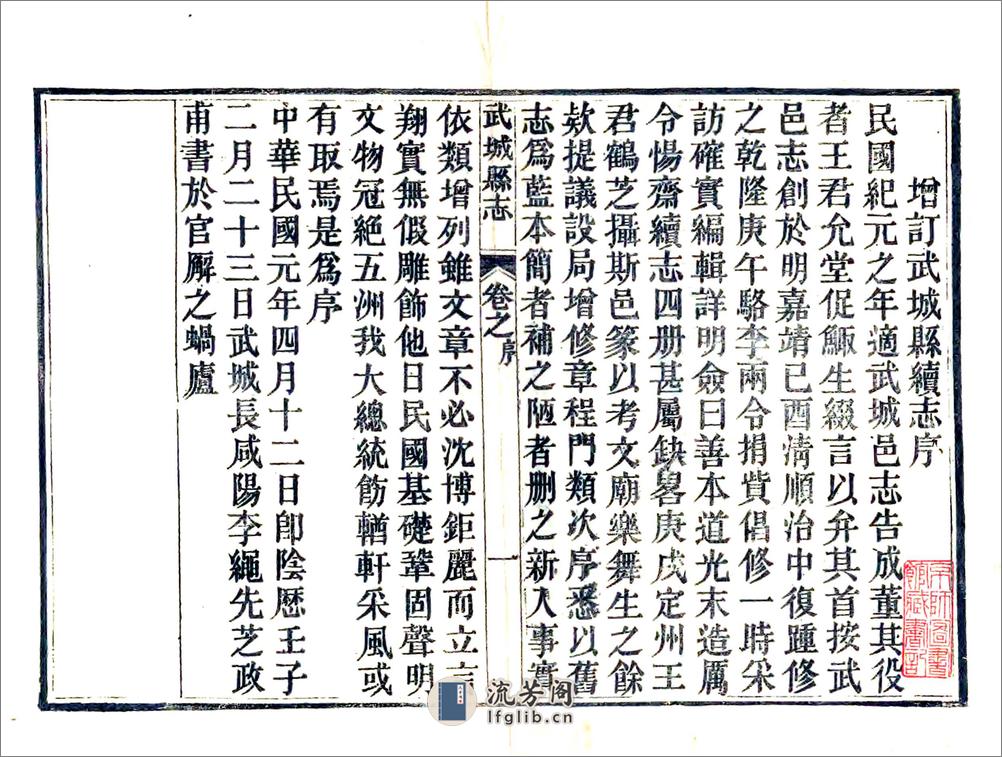 增訂武城縣續志序
民國紀元之年適武城邑志告成董其役
者王君允堂促鯫生綴言以弁其首按武
邑志創於明嘉靖己酉清順治中復踵修
之乾隆庚午駱李兩令捐貲倡修一時采
訪確實編輯詳明僉曰善本道光末造厲
令惕齋續志四册甚屬缺畧庚戌定州王
君鶴芝攝斯邑篆以考文廟樂舞生之餘
欵提議設局增修章程門類次序悉以舊
志爲藍本簡者補之陋者刪之新人事實
武城縣志
卷之序
一
依類增列雖文章不必沈博鉅麗而立言
翔實無假雕飾他日民國基礎鞏固聲明
文物冠絶五洲我大總統飭輶軒采風或
有取焉是爲序
中華民國元年四月十二日卽陰歷壬子
二月二十三日武城長咸陽李繩先芝政
甫書於官廨之蝸廬
流芳阁
lfglib.cn